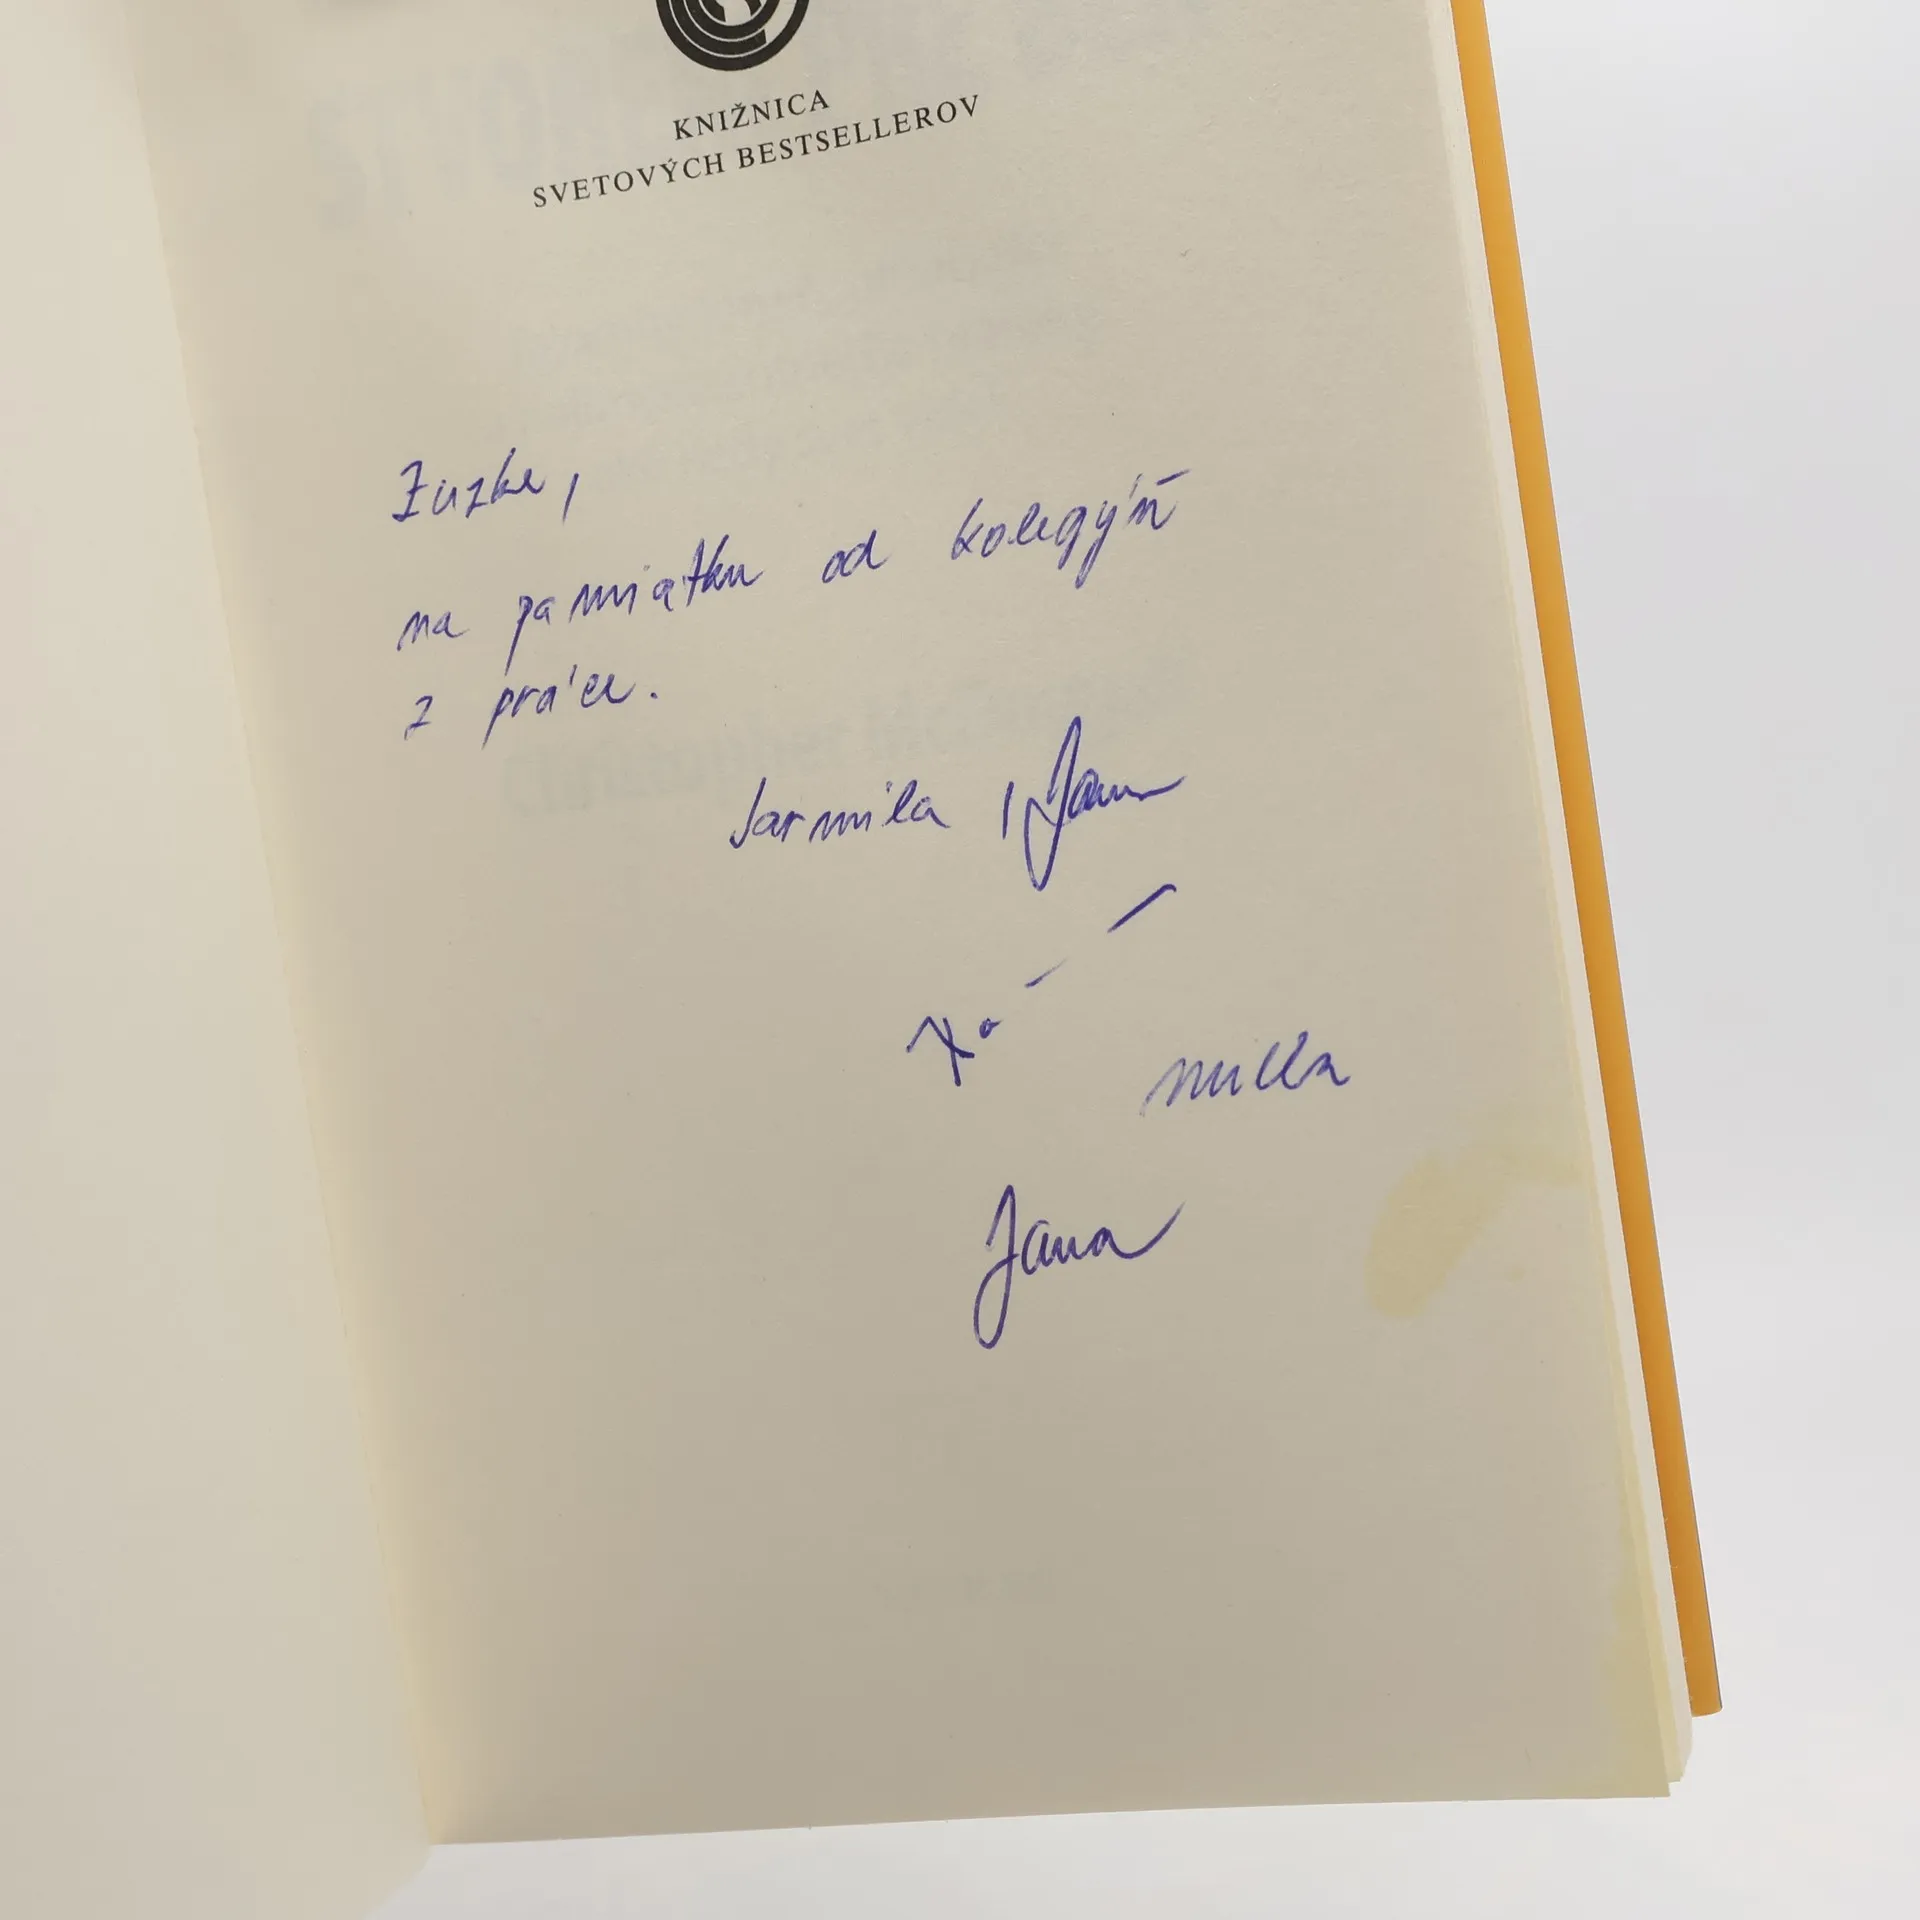 KNIŽNICA
SVETOVÝCH BESTSELLEROV
Zuzke,
na pamiatku od kolegýň
z práce.
Jarmila, Jana
Milka
Jana